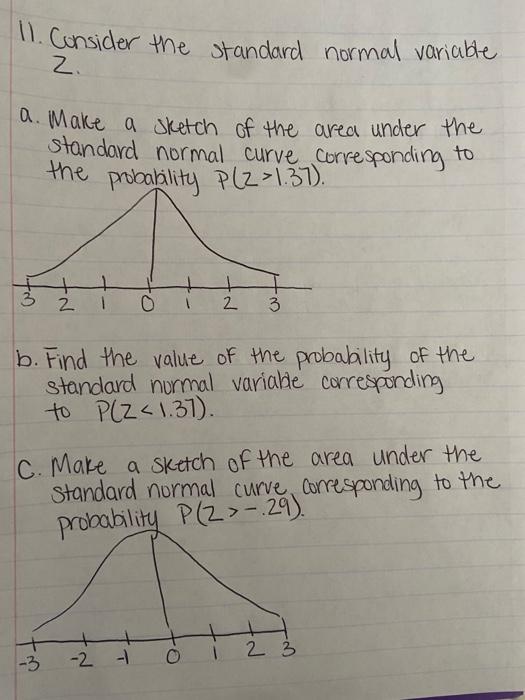 11. Consider the standard normal variable
Z.
a. Make a sketch of the area under the
standard normal curve corresponding to
the probability P(Z>1.37).
3 2 1 0 1 2 3
b. Find the value of the probability of the
standard normal variable corresponding
to P(Z<1.37).
C. Make a sketch of the area under the
standard normal curve corresponding to the
probability P(Z>-.29).
-3 -2 -1 0 1 2 3